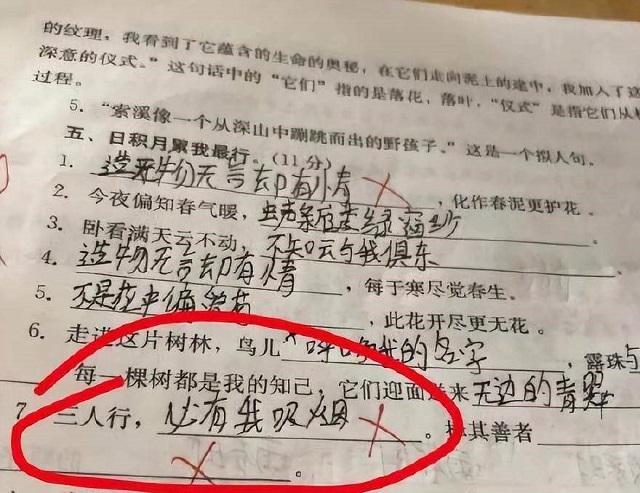 的纹理，我看到了它蕴含的生命的奥秘，在它们走向泥土的途中，我加入了这
深意的仪式。”这句话中的“它们”指的是落花，落叶，“仪式”是指它们从
过程。
5. “索溪像一个从深山中蹦跳而出的野孩子。”这是一个拟人句。
五、日积月累我最行。(11分)
1. 造物无言却有情，化作春泥更护花。
2. 今夜偏知春气暖，虫声新透绿窗纱。
3. 卧看满天云不动，不知云与我俱东
4. 造物无言却有情，每于寒尽觉春生。
5. 不是花中偏爱菊，此花开尽更无花。
6. 走进这片树林，鸟儿呼唤我的名字，露珠与
每一棵树都是我的知己，它们迎面送来无边的青翠
7. 三人行，必有我吸烟。择其善者
。